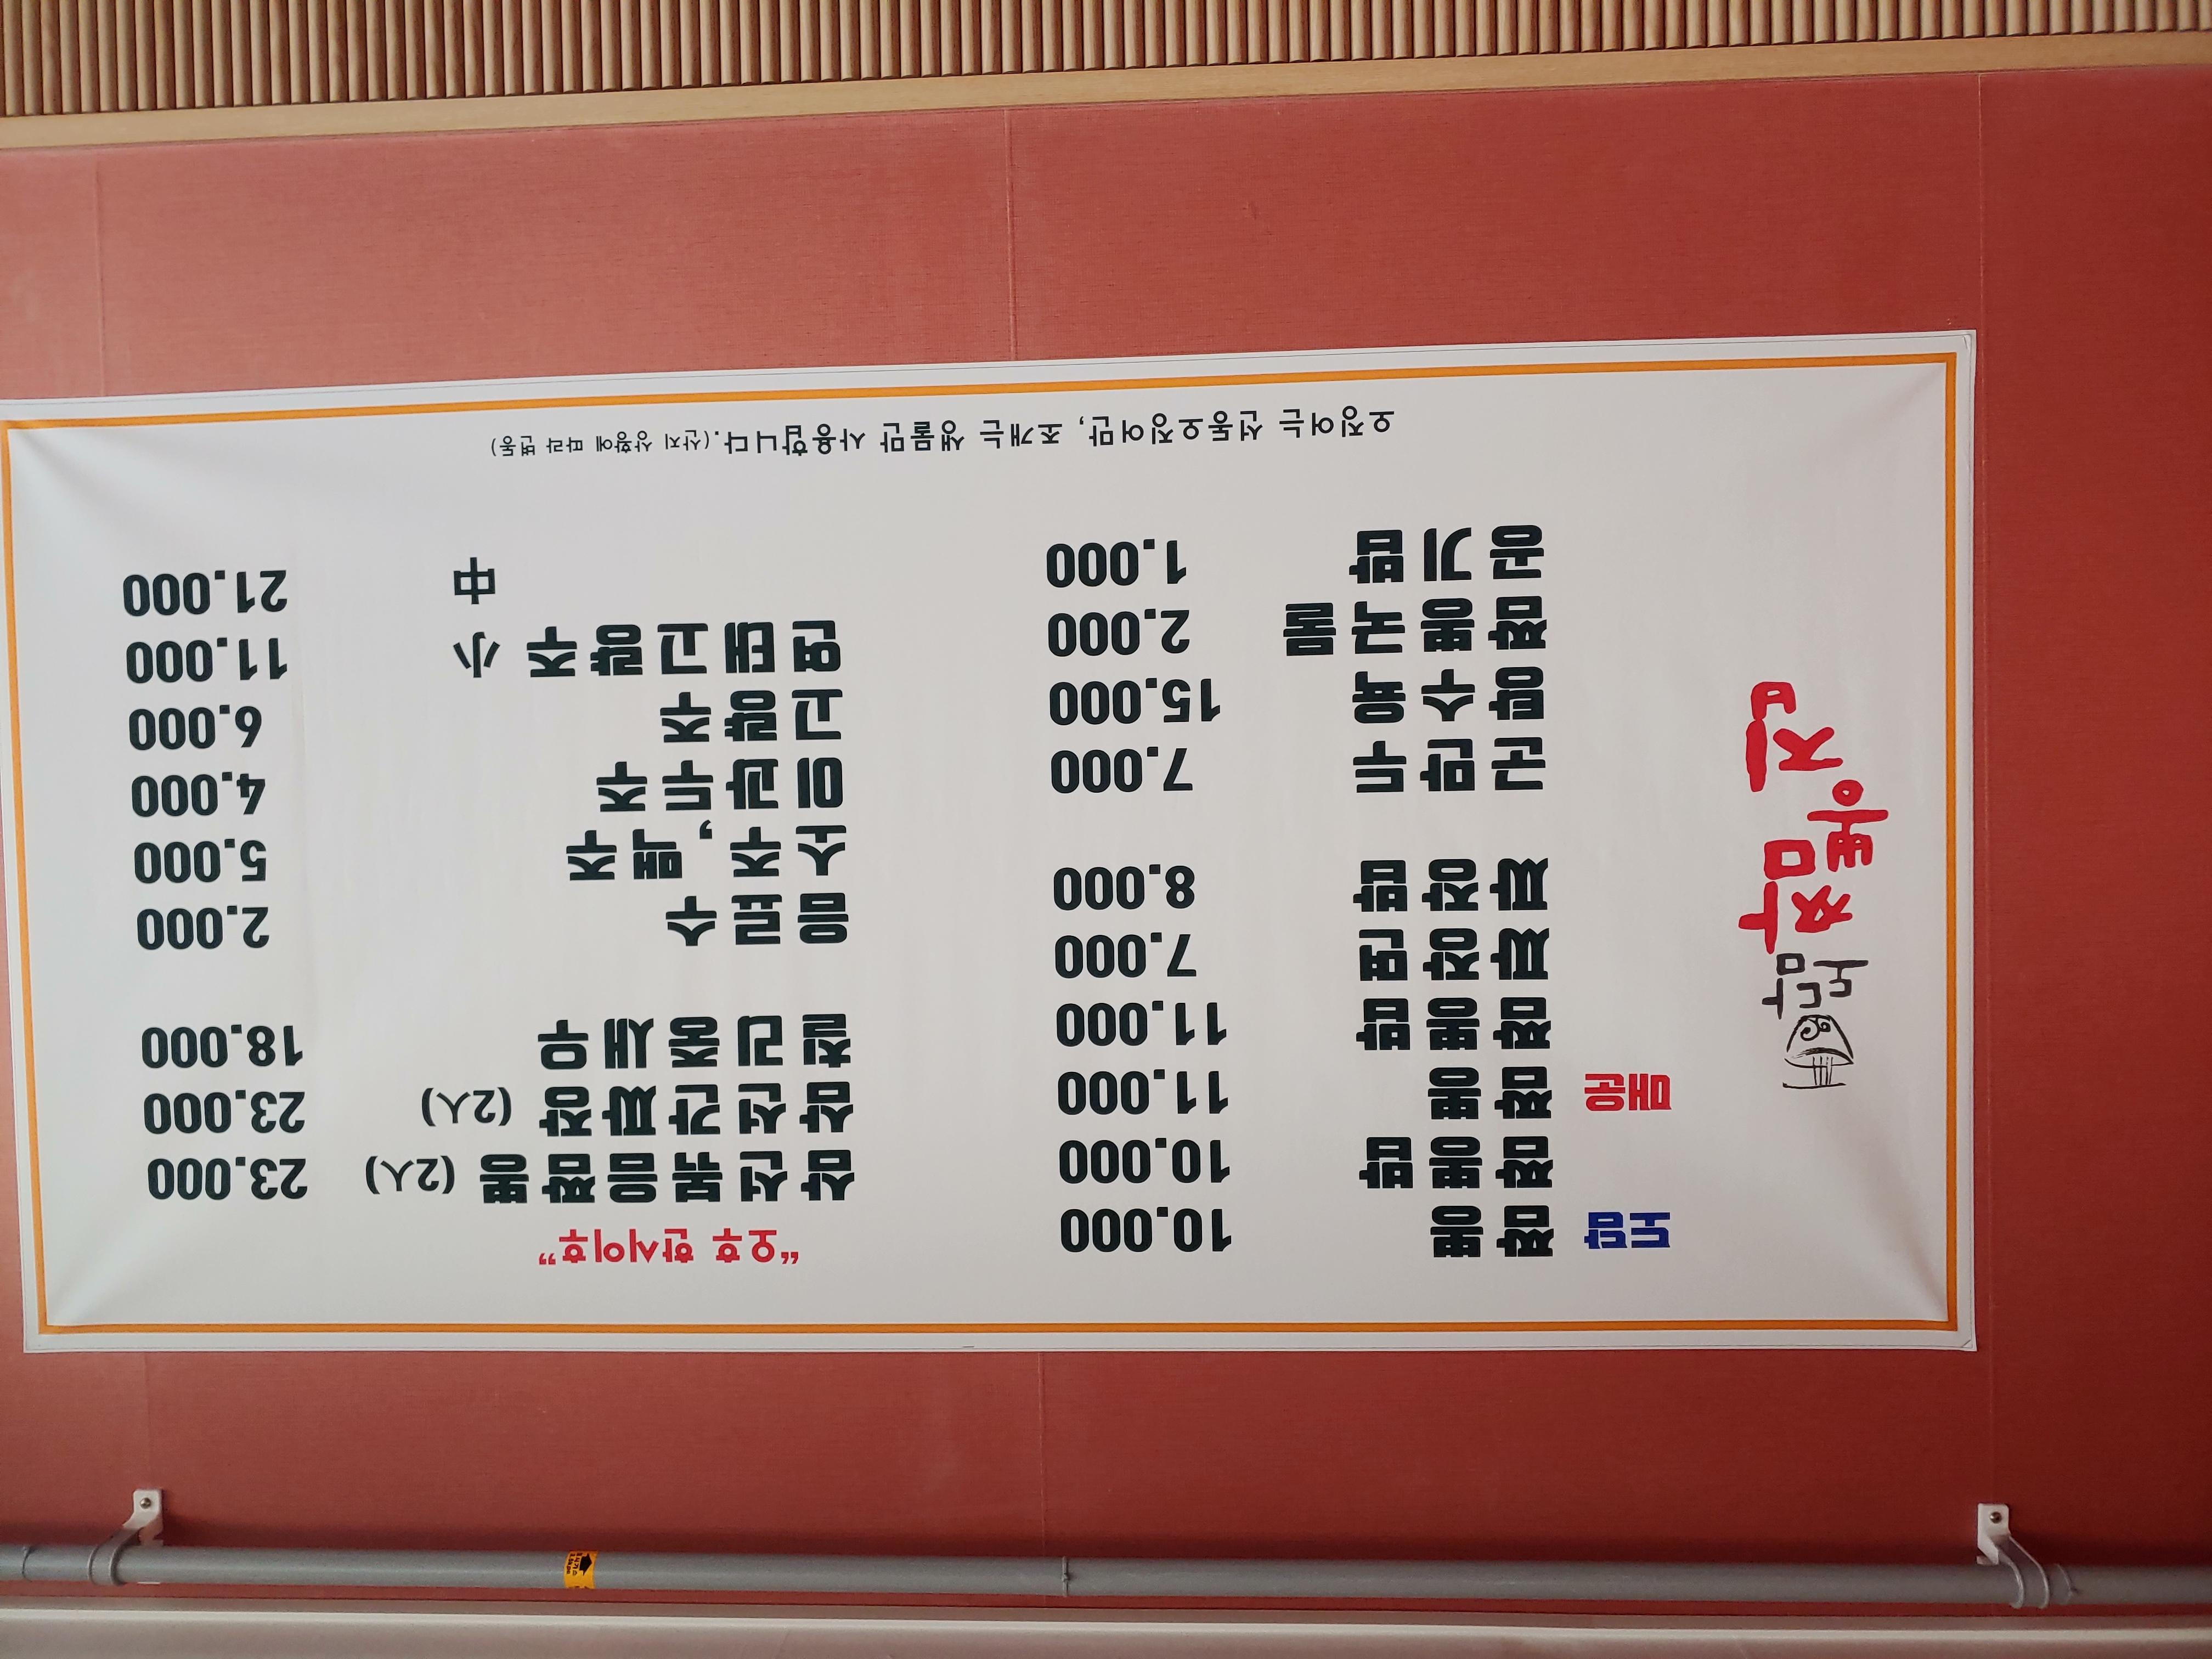 짬뽕집
노맵 짬뽕 10.000
짬뽕밥 10.000
짬뽕 11.000
짬뽕밥 11.000
짜장면 7.000
짜장밥 8.000
군만두 7.000
탕수육 15.000
짬뽕국물 2.000
공기밥 1.000
“오후 한시이후”
삼선볶음짬뽕 (2人) 23.000
삼선간짜장 (2人) 23.000
칠리중새우 18.000
음료수 2.000
소주,맥주 5.000
이과두주 4.000
고량주 6.000
연태고량주 小 11.000
中 21.000
오징어는 선동오징어만, 조개는 생물만 사용합니다.(산지 상황에 따라 변동)